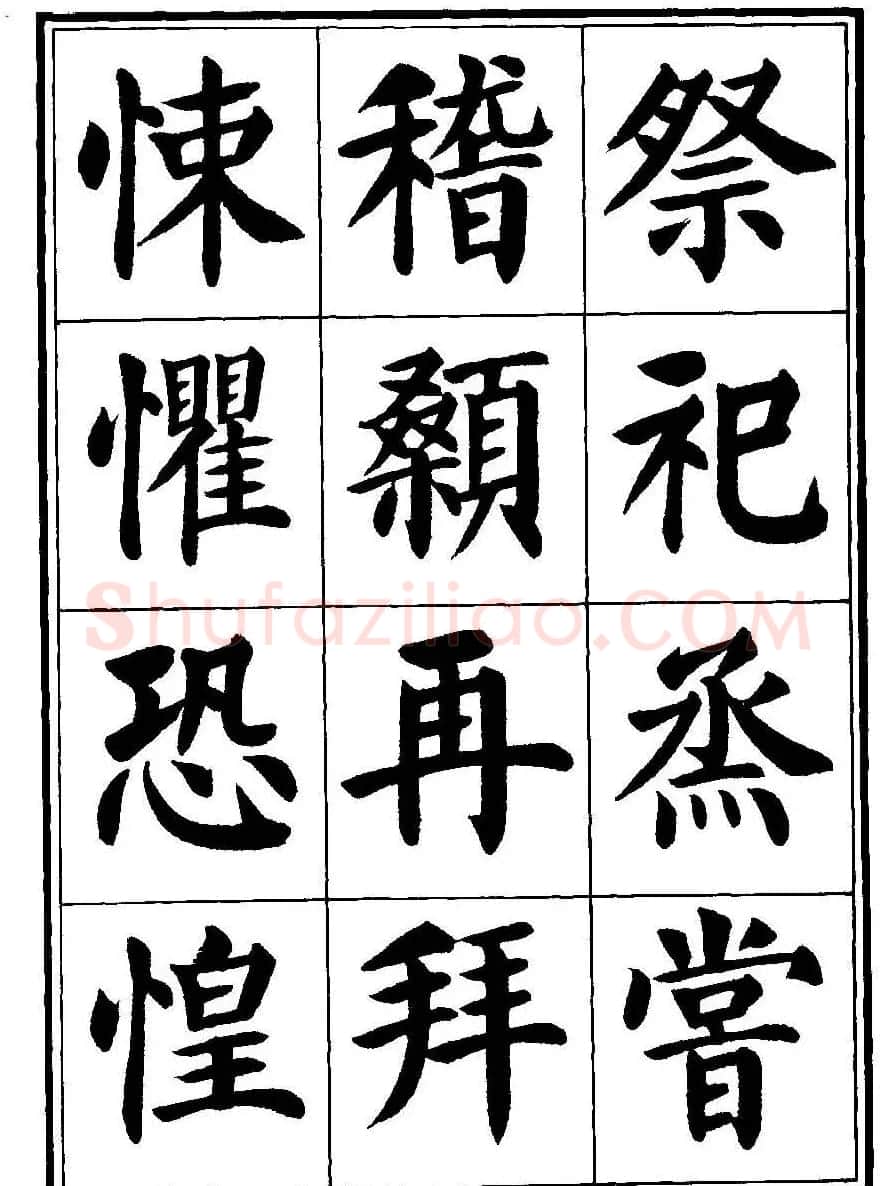 祭祀蒸嘗
稽顙再拜
悚懼恐惶
Shufaziliao.COM